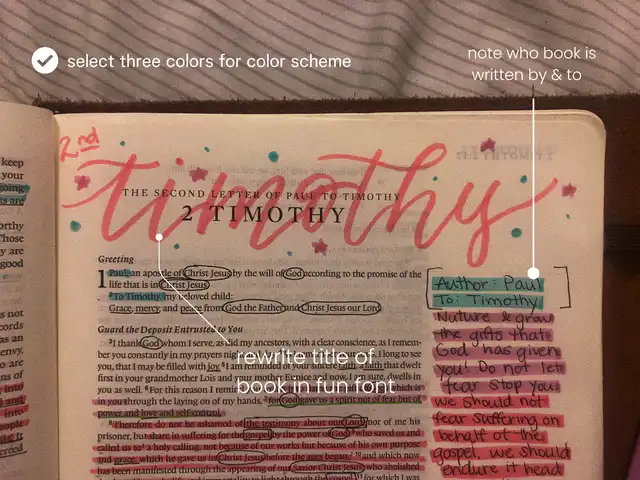 select three colors for color scheme
note who book is
written by & to
2nd
timothy
THE SECOND LETTER OF PAUL TO TIMOTHY
2 TIMOTHY
keep
your
going
are
orthy
Those
y are
good
Greeting
1 Paul, an apostle of Christ Jesus by the will of God according to the promise of the
life that is in Christ Jesus,
2 To Timothy, my beloved child:
Grace, mercy, and peace from God the Father and Christ Jesus our Lord.
Guard the Deposit Entrusted to You
3 I thank God whom I serve, as did my ancestors, with a clear conscience, as I remem-
ber you constantly in my prayers I long to see
you, that I may be filled with joy. I am reminded of your sincere faith, a faith that dwelt
first in your grandmother Lois and your mother Eunice and now, I am sure, dwells in
you as well. 6 For this reason I which is
in you through the laying on of my hands, 7 for God gave us a spirit not of fear but of
power and love and self-control.
8 Therefore do not be ashamed of the testimony about our Lord, nor of me his
prisoner, but share in suffering for the gospel by the power of God, 9 who saved us and
called us to a holy calling, not because of our works but because of his own purpose
and grace, which he gave us in Christ Jesus before the ages began, 10 and which now
has been manifested through the appearing of our Savior Christ Jesus, who abolished
rewrite title of
book in fun font
Author: Paul
To: Timothy
Nuture & grow
the gifts that
God has given
you! Do not let
fear stop you
we should not
fear suffering on
behalf of the
gospel, we should
endure it head